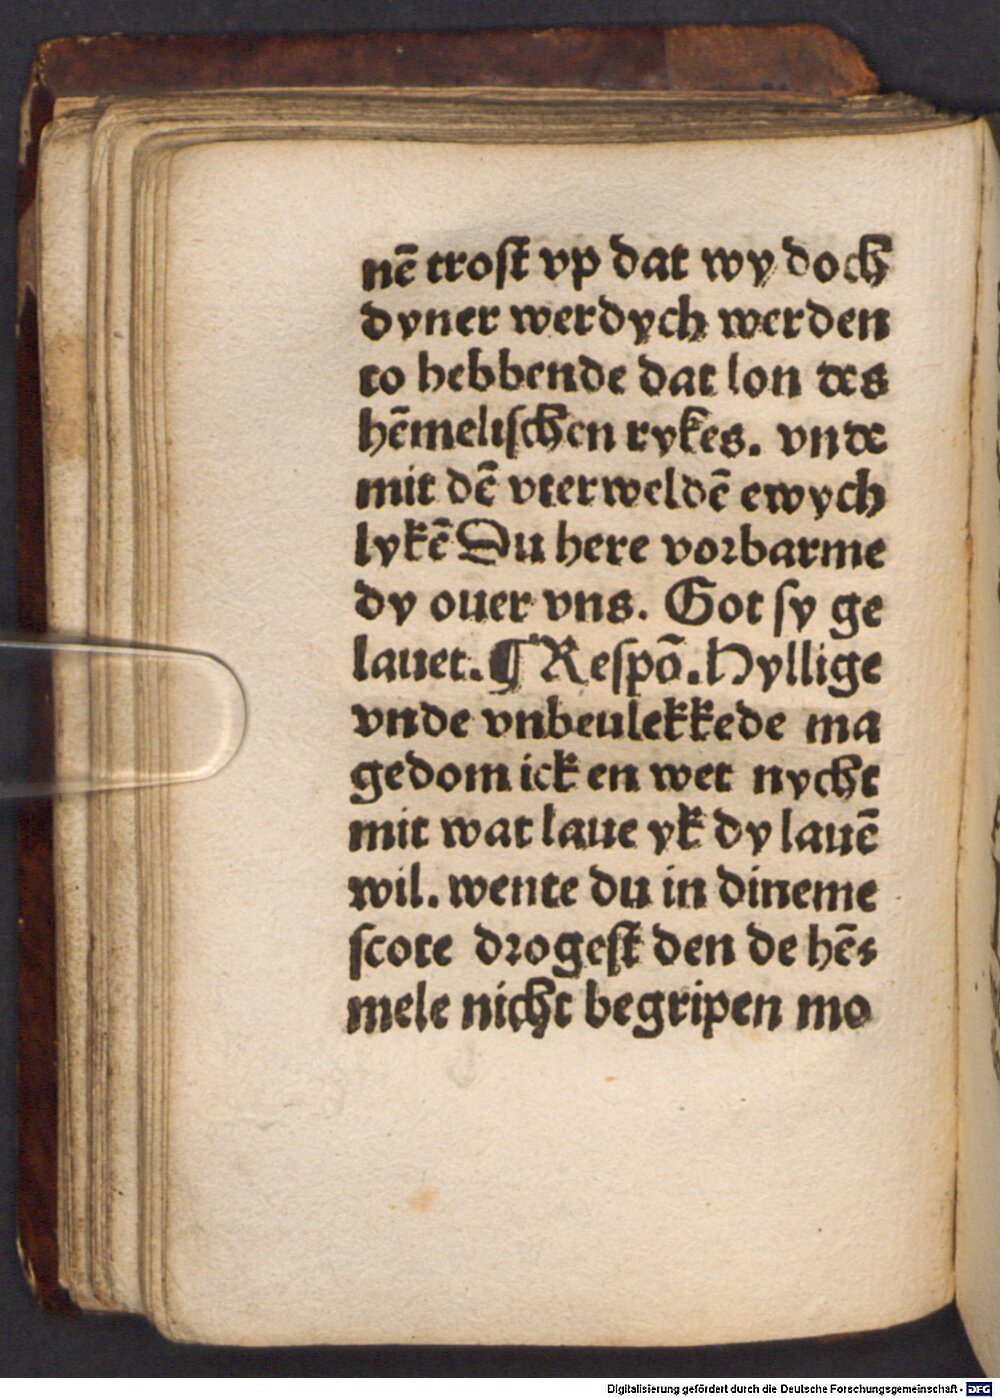 nē trost vp dat wy doch
dyner werdych werden
to hebbende dat lon des
hēmelischen rykes. vnde
mit dē vterweldē ewych
lykē Du here vorbarme
dy ouer vns. Got sy ge
lauet. ¶ Respō. Hyllige
vnde vnbeulekkede ma
gedom ick en wet nycht
mit wat laue yk dy lauē
wil. wente du in dineme
scote drogest den de hē⸗
mele nicht begripen mo
Digitalisierung gefördert durch die Deutsche Forschungsgemeinschaft - DFG